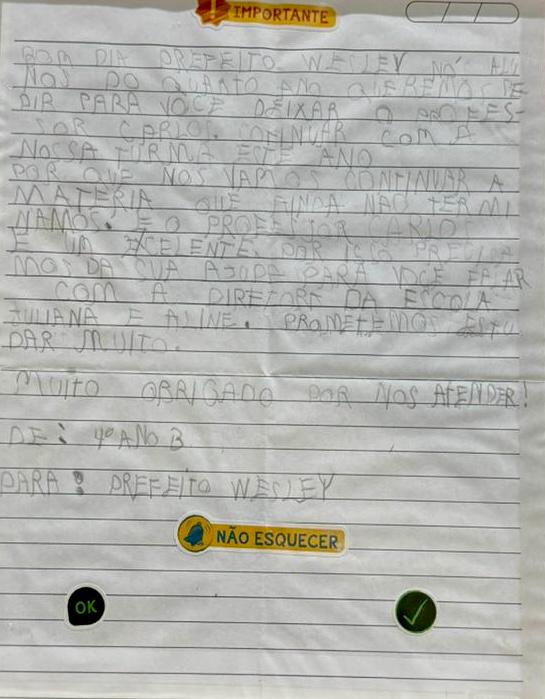 IMPORTANTE
BOM DIA PREFEITO WESLEY NÓS ALU
NOS DO QUANTO ANO QUEREMOS PE
DIR PARA VOCE DEIXAR O PROFES-
SOR CARLOS. CONTINUAR COM A
NOSSA TURMA ESTE ANO
POR QUE NOS VAMOS CONTINUAR A
MATERIA QUE AINDA NÃO TERMI
NAMOS. E O PROFESSOR CARLOS
E UM EXCELENTE. POR ISSO PRECISA
MOS DA SUA AJUDA PARA VOCE FALAR
COM A DIRETORA DA ESCOLA
JULIANA E ALINE. PROMETEMOS ESTU
DAR MUITO.
MUITO OBRIGADO POR NOS ATENDER!
DE: 4º ANO B
PARA: PREFEITO WESLEY
NÃO ESQUECER
OK